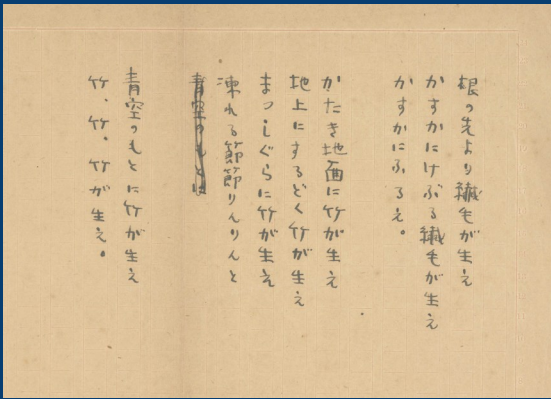 根の先より繊毛が生え
かすかにけぶる繊毛が生え
かすかにふるえ。
かたき地面に竹が生え
地上にするどく竹が生え
まつしぐらに竹が生え
凍れる節節りんりんと
青空のもとに
青空のもとに竹が生え
竹、竹、竹が生え。